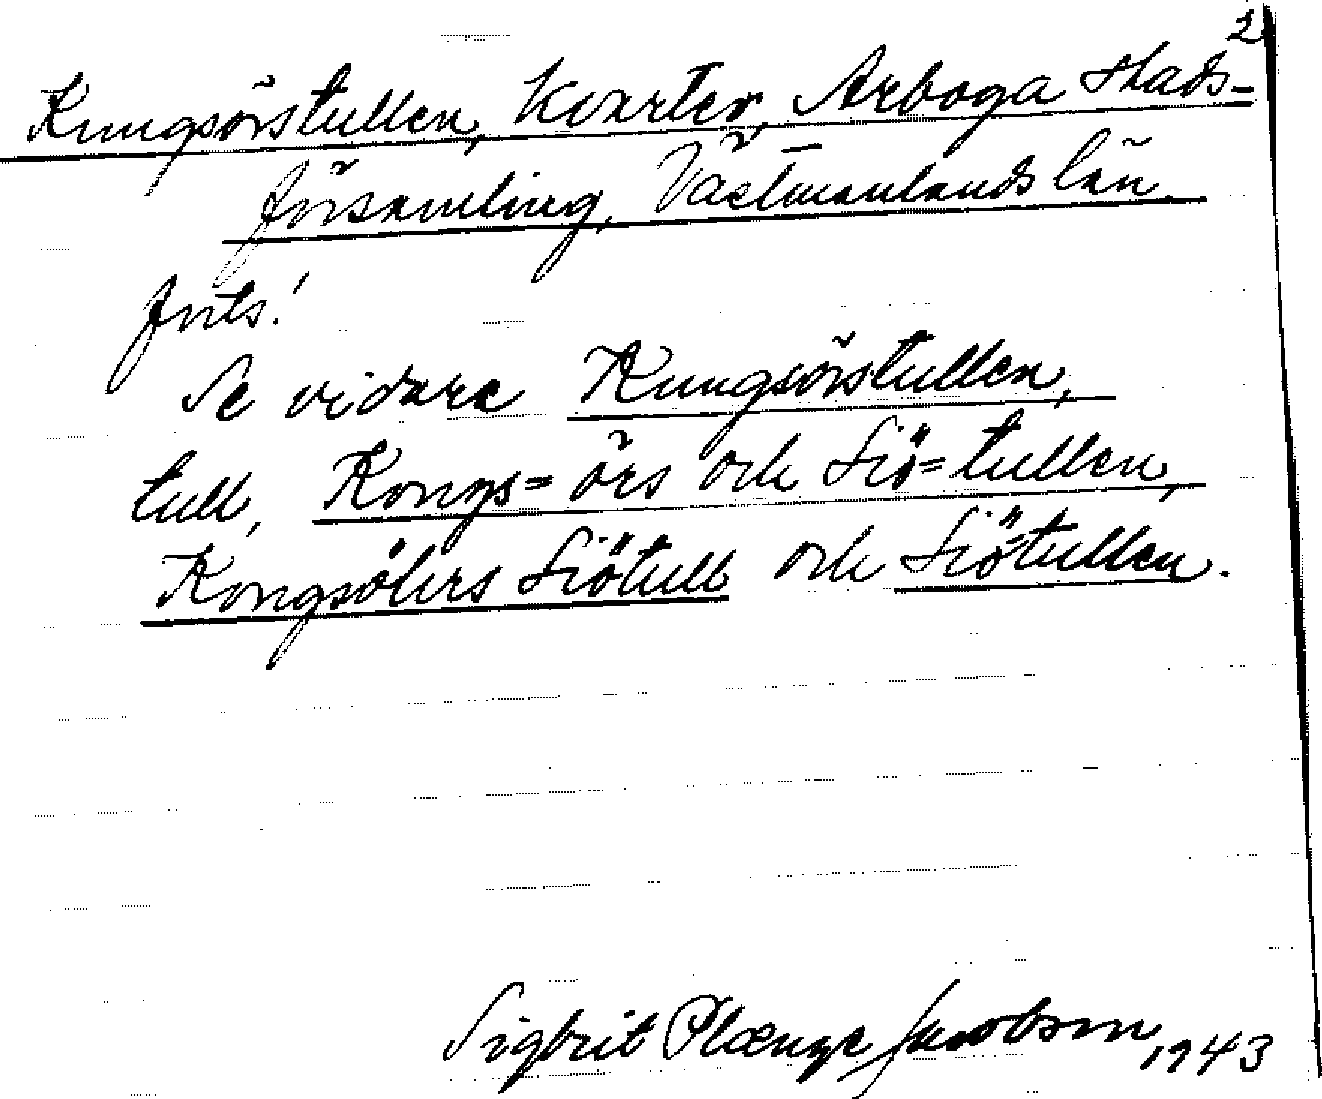 2
Kungsörstullen, kvarter, Arboga stads-
församling, Västmanlands län.
forts.!
Se vidare Kungsörstullen,
tull, Kongs=örs och Siö=tullen,
Kongsöhrs Siötull och Siö=tullen.
Sigbrit Plænge Jacobson 1943